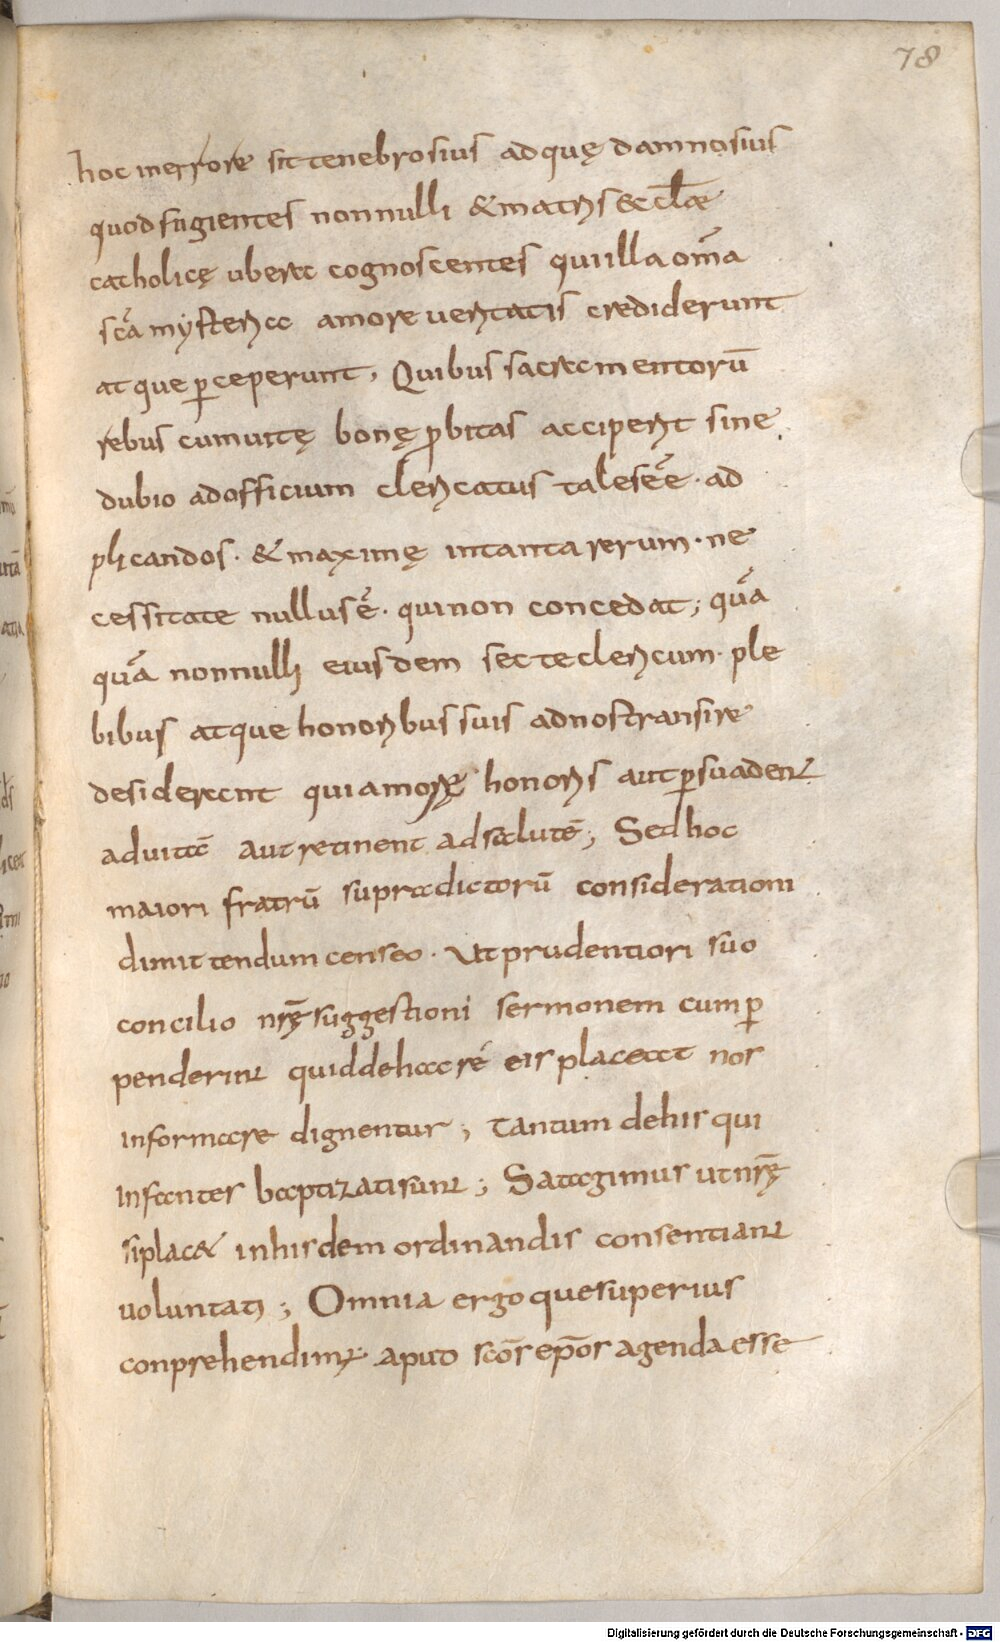 78
hoc inerrore sit tenebrosius adquę damnosius
quod fugientes nonnulli & matris eccl̅ae
catholicę ubera cognoscentes qui illa om̅a
sc̅a mysteria amore ueritatis crediderunt
atque ꝑceperunt, Quibus sacramentorū
rebus cum uitę bonę ꝓbitas acciperit sine
dubio ad officium clericatus tales ee̅· ad
plicandos· & maximę in tanta rerum· ne
cessitate nullus e̅· qui non concedat; quā
quā nonnulli eiusdem secte clericum· ple
bibus atque honoribus suis ad nos transire
desiderant qui amore honoris aut ꝑsuadent
ad uitā aut retinent ad salutē; Sed hoc
maiori fratrū supradictorū considerationi
dimittendum censeo· Ut prudentiori suo
concilio nr̅ę suggestioni sermonem cum ꝑ
penderint quid de hac re eis placeat nos
informare dignentur; Tantum de his qui
infantes baptizati sunt; Satagimus ut nr̅ę
si plac& in hisdem ordinandis consentiant
uoluntati; Omnia ergo que superius
conprehendim; aput sc̅os ep̅os agenda esse
Digitalisierung gefördert durch die Deutsche Forschungsgemeinschaft - DFG